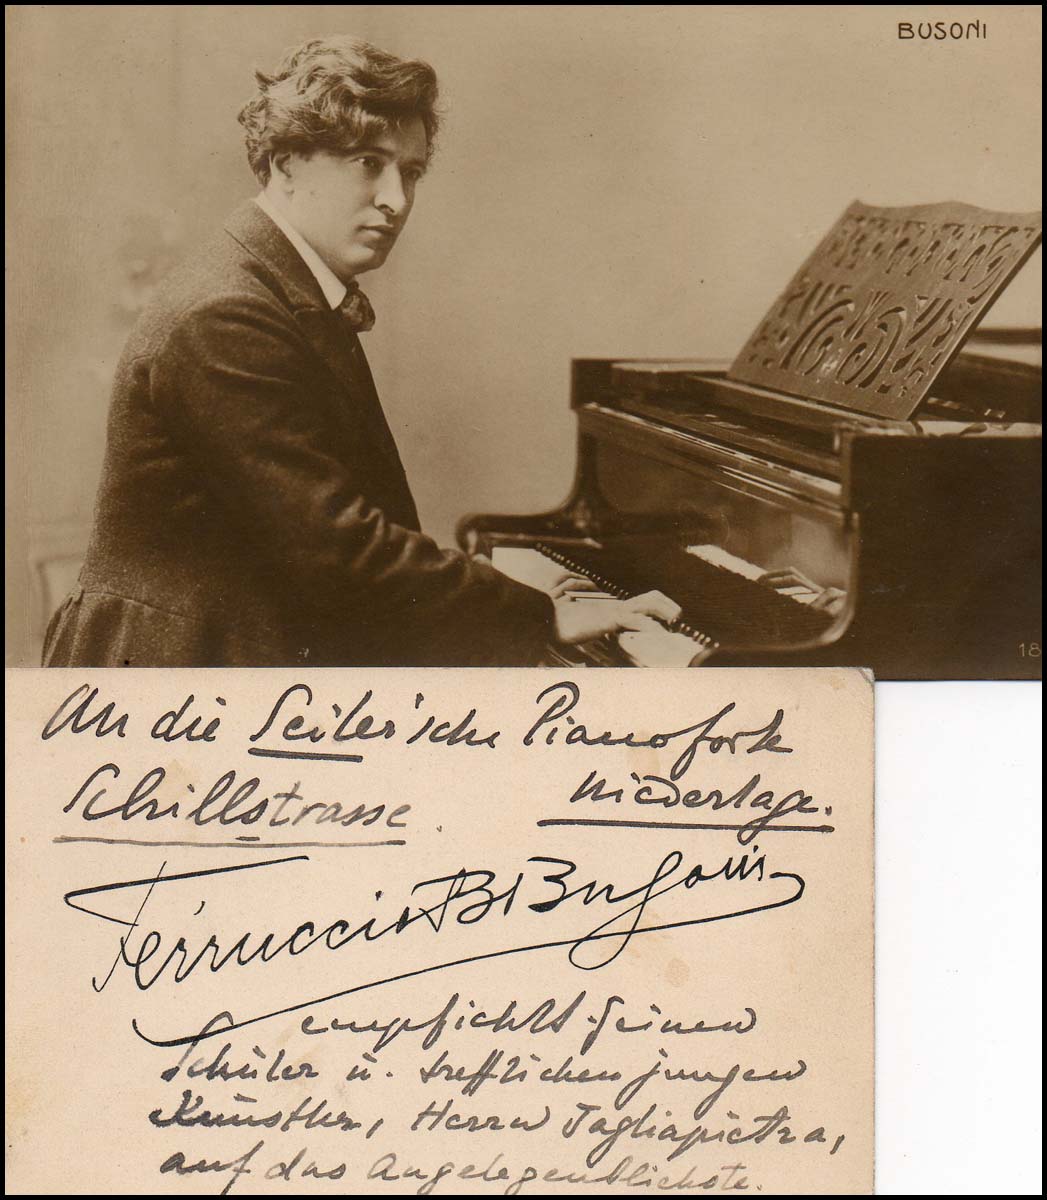 BUSONI
18
An die Seiler'sche Pianoforte
Niederlage.
Schillstrasse.
Ferruccio B Busoni
empfiehlt seinen
Schüler u. trefflichen jungen
Künstler, Herrn Tagliapietra,
auf das Angelegentlichste.